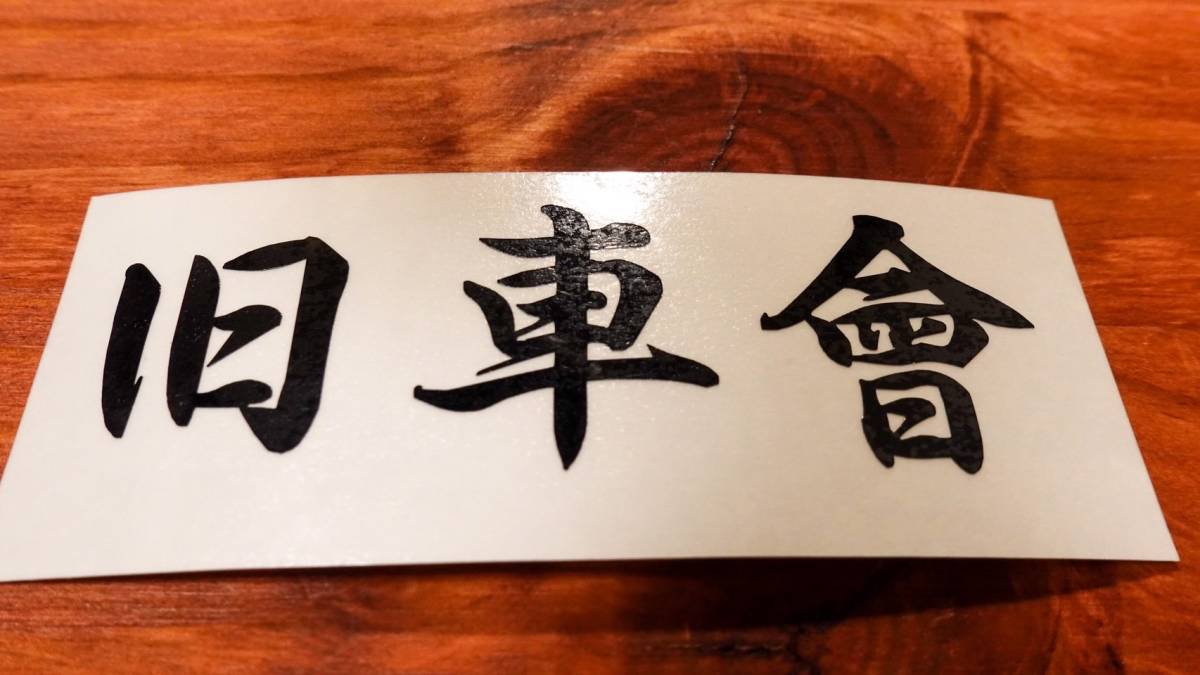 旧車會